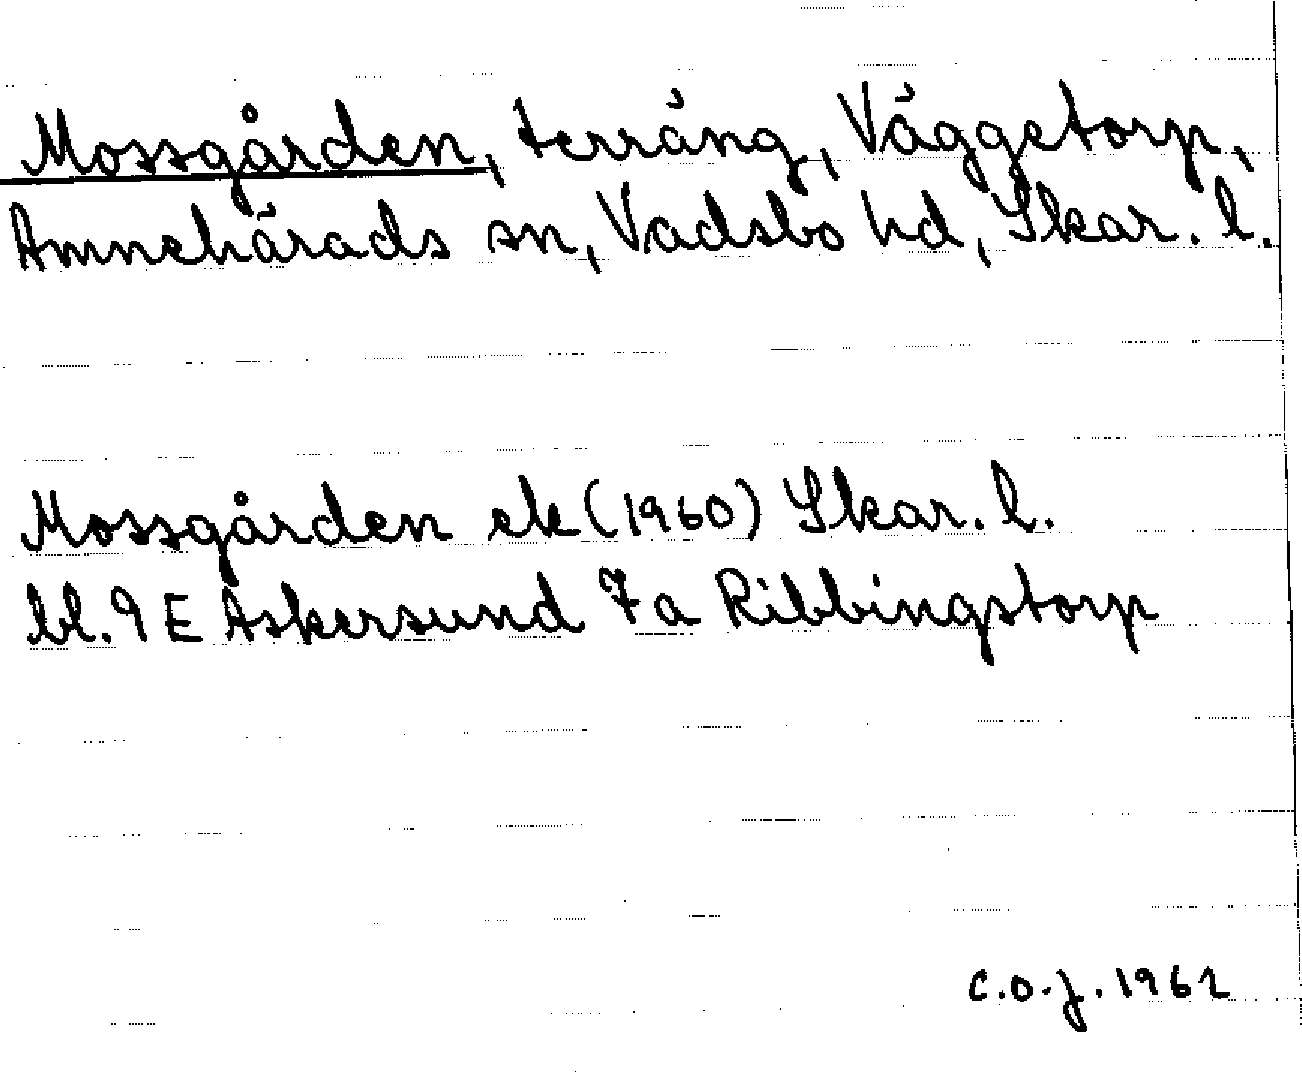 Mossgården, terräng, Väggetorp,
Amnehärads sn, Vadsbo hd, Skar. l.
Mossgården ek (1960) Skar. l.
bl. 9 E Askersund 7 a Ribbingstorp
C.O.J. 1962